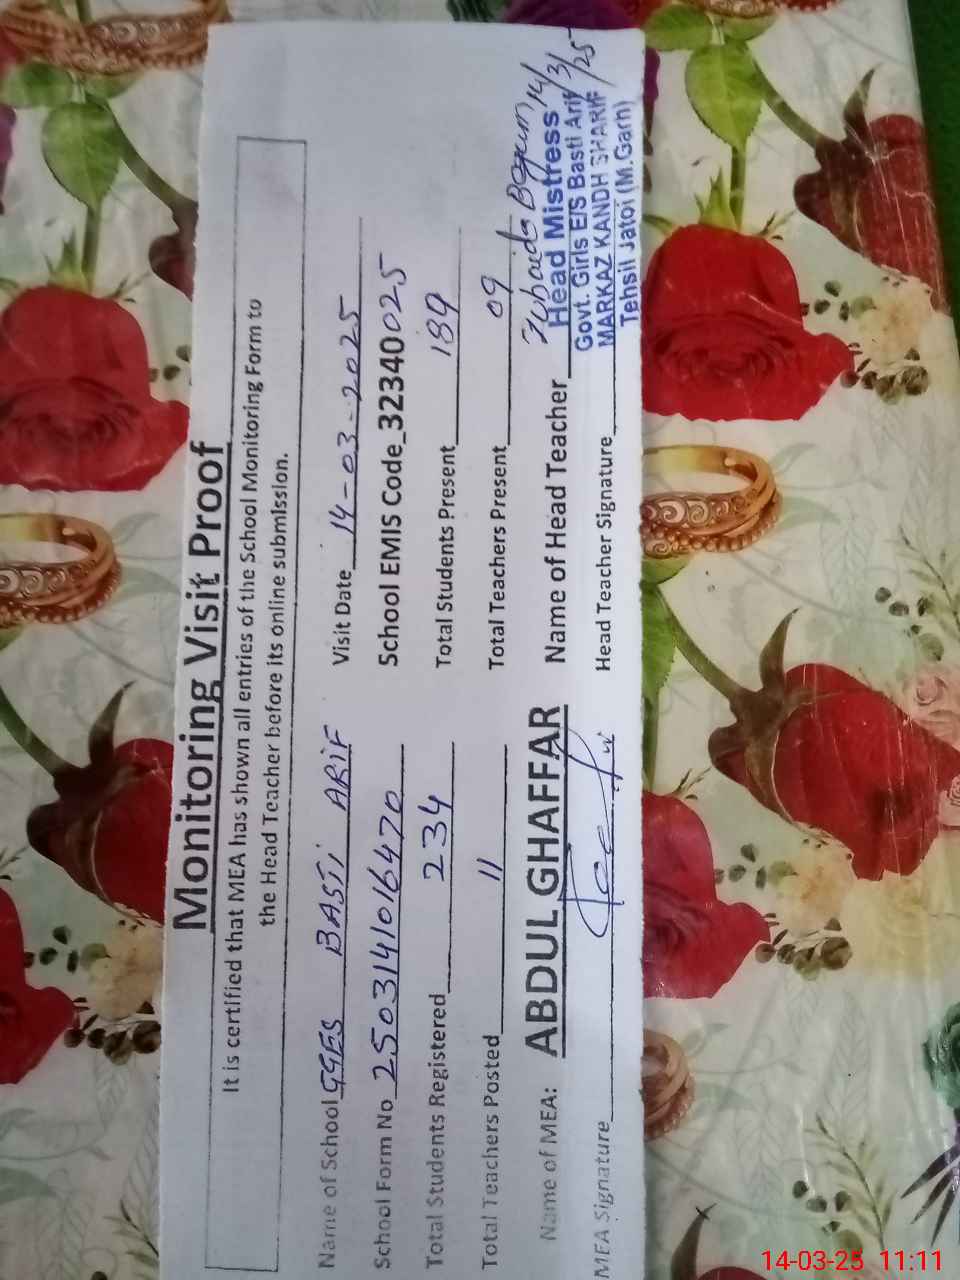 Monitoring Visit Proof
It is certified that MEA has shown all entries of the School Monitoring Form to
the Head Teacher before its online submission.
Name of School GGES BASTI ARIF Visit Date 14-03-2025
School Form No 250314101016470 School EMIS Code_32340025
Total Students Registered 234 Total Students Present 189
Total Teachers Posted 11 Total Teachers Present 09
Name of MEA: ABDUL GHAFFAR Name of Head Teacher Zubaida Begum 14/3/25
MEA Signature Head Teacher Signature
Head Mistress
Govt. Girls E/S Basti Arif
MARKAZ KANDH SHARIF
Tehsil Jatoi (M.Garh)
14-03-25 11:11